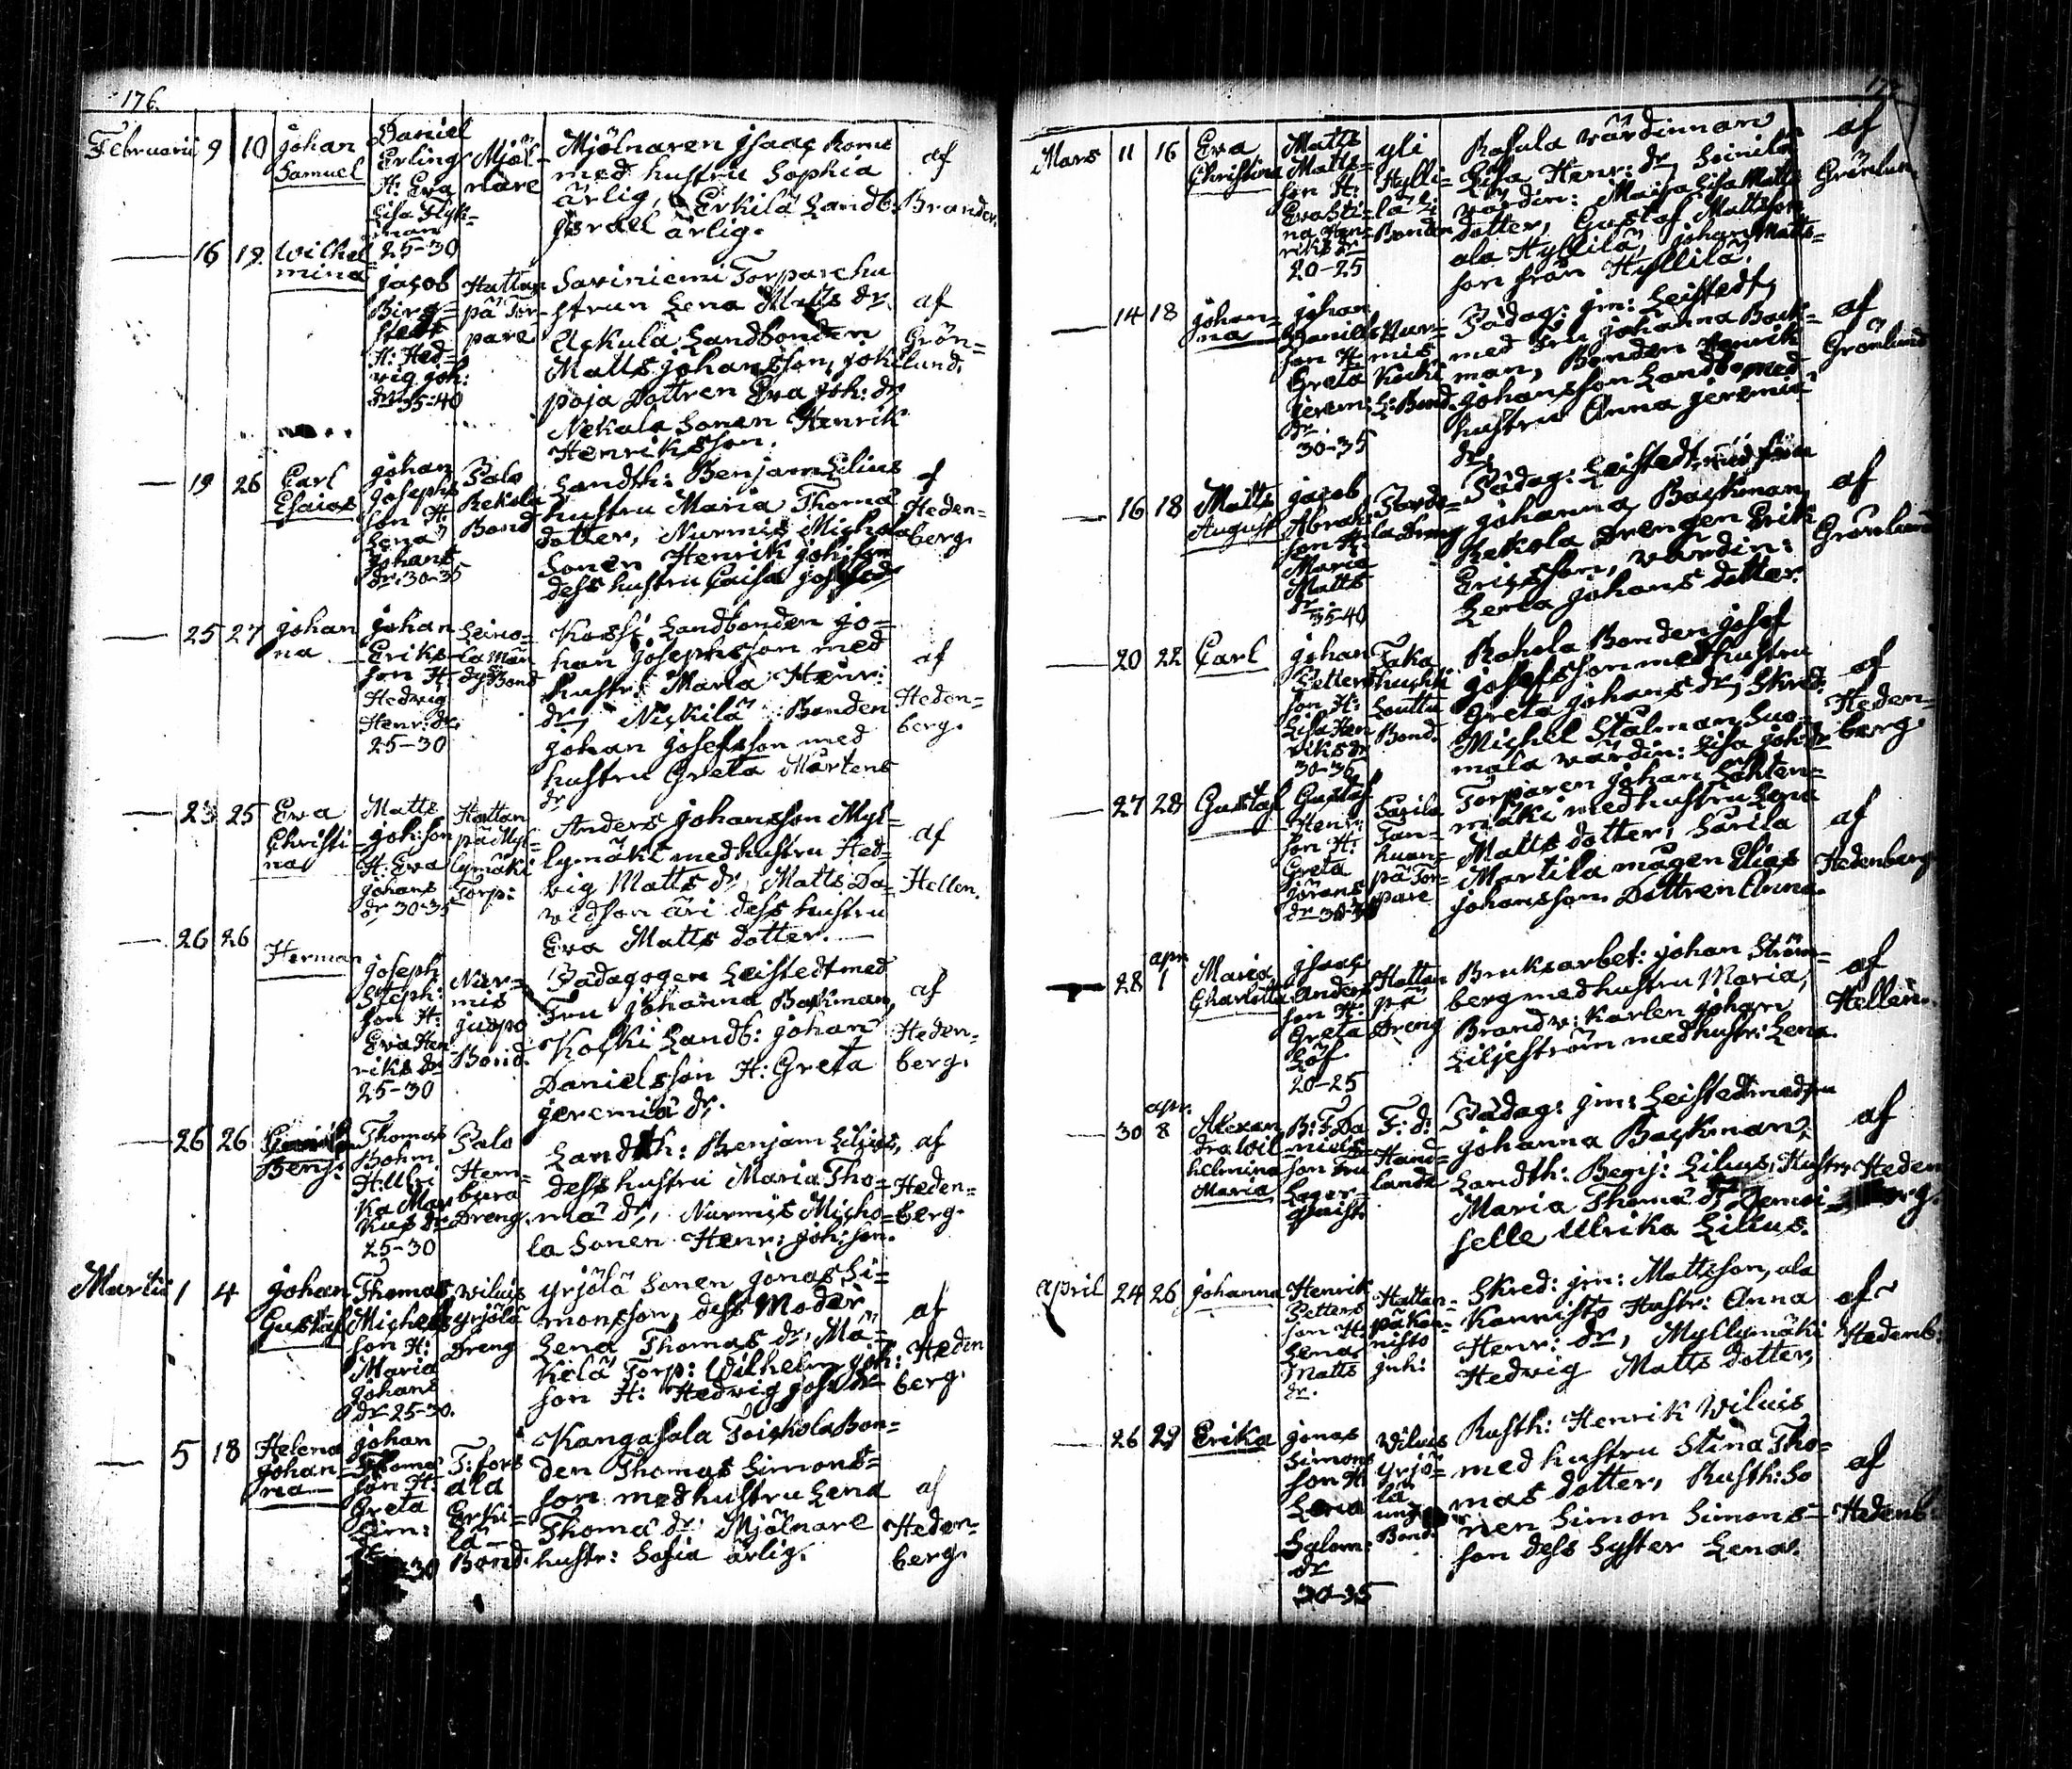 176.
Februarii 9 10 Johan Samuel
Daniel
Erlings
H: Eva
Lisa Flyk=
man
25-30
Mjöl-
nare
Mjölnaren Isaac
med hustru Sophia
ärlig, Erkilä Landtb:
Israel ärlig.
af
Brander.
— 16 18 Wilhel
mina
Jacob
Birg=
stedt
H: Hed=
vig Joh:
dr 35-40
Hattan
pä Tor-
pare
Saviniemi Torpare hu
strun Lena Matts dr
Uckula Landbonden
Matts Johansson, Joki
poja Dottren Eva Joh: dr
Nekala Sonen Henrik
Henriksson.
af
Grön=
lund.
— 19 26 Carl
Esaias
Johan
Josephs
son H:
Lena
Johans
dr: 30-35
Palo
Rekola
Bond
Landth: Benjam Lilius
hustru Maria Thomæ
dotter, Nurmis Michola
Sonen Henrik Joh:son
dess hustru Caisa
af
Heden=
berg.
— 25 27 Johan
na
Johan
Eriks-
son H:
Hedvig
Henr: dr
25-30
Leino=
la
Bond
Koski Landbonden Jo=
han Josephsson med
hustr: Maria Henr:
dr, Nickilä Bonden
Johan Josefsson med
hustru Greta Mårtens
dr
af
Heden=
berg.
— 23 25 Eva
Christi=
na
Matts
Joh:son
H: Eva
Johans
dr 30-35
Hattan
pä Myl=
lymäki
Torp:
Anders Johansson Myl=
lymäki med hustru Hed=
vig Matts dr, Matts Da=
vidson äri dess hustru
Eva Matts dotter. —
af
Hellen.
— 26 26 Herman
Joseph
Steph:
son H:
Eva Hen
riks dr
25-30
Nur=
mis
Juspo
Bond.
Pädagogen Leistedt med
Fru Johanna Backman,
Koski Landb: Johan
Danielsson H: Greta
Jeremiæ dr.
af
Heden=
berg.
— 26 26
Benj:
Thomas
Bohm
H: Ulri
ka Mar
kus dr
25-30
Palo
Hem=
bura
Dreng.
Landth: Benjam Lilius,
dess hustru Maria Tho=
mæ dr, Nurmis Micho=
la Sonen Henr: Joh:son.
af
Heden=
berg.
Martii 1 4 Johan
Gustaf
Thomas
Michels
son H:
Maria
Johans
dr 25-30.
Wiluis
Yrjölä
Dreng
Yrjölä Sonen Jonas Si=
monsson, dess Moder
Lena Thomas dr, Mä=
kelä Torp: Wilhelm Joh:
son H: Hedvig Joh: dr
af
Heden
berg.
— 5 18 Helena
Johan=
na —
Johan
Thomæ
son H:
Greta
Sim:
dr
30
T: fors
ala
Erki=
lä —
Bond:
Kangasala Toickola Bon=
den Thomas Simons=
son med hustru Lena
Thomæ dr: Mjölnare
hustr: Sofia ärlig.
af
Heden=
berg.
Mars 11 16 Eva
Christina
Matts
Matts=
son H:
Eva Sti=
na Hen=
riks dr
20-25
yli
Hylli=
lä
Bonden
Rasula värdinnan
Lisa Henr: dr, Heinilä
värdin: Maija Lisa Matts
dotter, Gustaf Mattsson
ala Hyllilä, Johan Matts=
son från Hyllilä.
af
Grönlund
— 14 18 Johan=
na
Johan
Daniels
son H:
Greta
Jerem:
dr.
30-35
Nur=
mis
Koski
L: Bond.
Pädag: jm: Leistedt,
med Fru Johanna Back=
man, Bonden Henrik
Johansson Landbo med
hustru Anna Jeremiæ
dr.
af
Grönlund
— 16 18 Matts
August
Jacob
Abrah:
son H:
Maria
Matts
dr.
35-40
la Dreng
Pädag: Leistedt med frun
Johanna Backman,
Rekola Drengen Erik
Ericsson, värdin:
Lerta Johans dotter.
af
Grönlund
— 20 22 Carl
Johan
Petters
son H:
Lisa Hen
riks dr
30-36
Taka
huhti
Louttu
Bond.
Rahola Bonden Josef
Josefsson med hustru
Greta Johans dr, Skred:
Michel Stålman, Suo=
mala värdin: Lisa Joh: dr
af
Heden=
berg.
— 27 28 Gustaf
Gustaf
Henr:
son H:
Greta
Jörans
dr 30-35
Särila
Jan=
huan=
pä Tor=
pare
Torparen Johan Lähten=
mäki med hustru Lena
Matts dotter, Särilä
Martila mågen Elias
Johansson Dottren Anna.
af
Hedenberg
— 28 apr. 1 Maria
Charlotta
Isaac
Anders
son H:
Greta
Löf.
20-25
Hattan
pä
Dreng
Bruksarbet: Johan Ström=
berg med hustru Maria,
Brandv: Karlen Johan
Liljeström med hustr: Lena.
af
Hellen.
— 30 apr. 8 Alexan
dra Wil
helmina
Maria
B: F: Da
niels=
son Fru
Lager=
quist.
F: d:
Hand=
lande
Pädag: jm: Leistedt med fru
Johanna Backman,
Landth: Benj: Lilius, Hustr:
Maria Thomæ dr, Demoi=
selle Ulrika Lilius.
af
Heden
berg.
April 24 26 Johanna
Henrik
Petters
son H:
Lena
Matts
dr.
Hattan=
pä Kan=
nisto
Inh:
Skred: jm: Mattsson, ala
Kannisto Hustr: Anna
Henr: dr, Myllymäki
Hedvig Matts dotter,
af
Hedenb:
— 26 29 Erika
Jonas
Simons
son H:
Lena
Salom:
dr
30-35
Wiluis
Yrjö=
lä
ung
Bond.
Rusth: Henrik Wiluis
med hustru Stina Tho=
mas dotter, Rusth: So
nen Simon Simons=
son dess Syster Lena.
af
Hedenb: